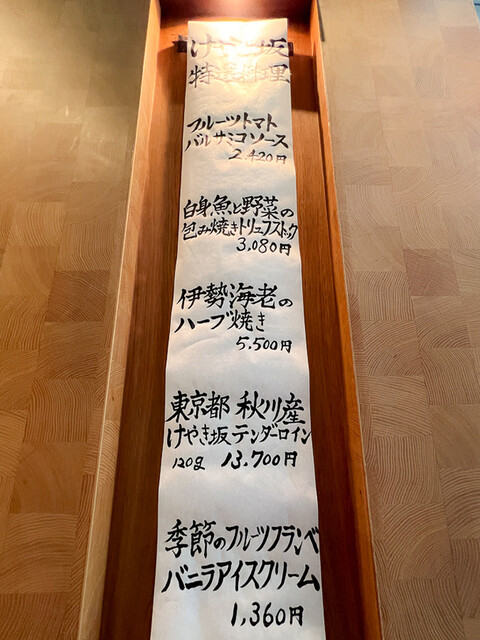 けやき坂
特選料理
フルーツトマト
バルサミコソース
2.420円
白身魚と野菜の
包み焼きトリュフストック
3.080円
伊勢海老の
ハーブ焼き
5.500円
東京都 秋川産
けやき坂テンダーロイン
120g 13.700円
季節のフルーツフランベ
バニラアイスクリーム
1,360円